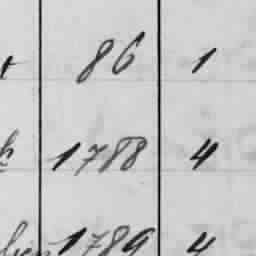 86 1
1788 4
1789 4